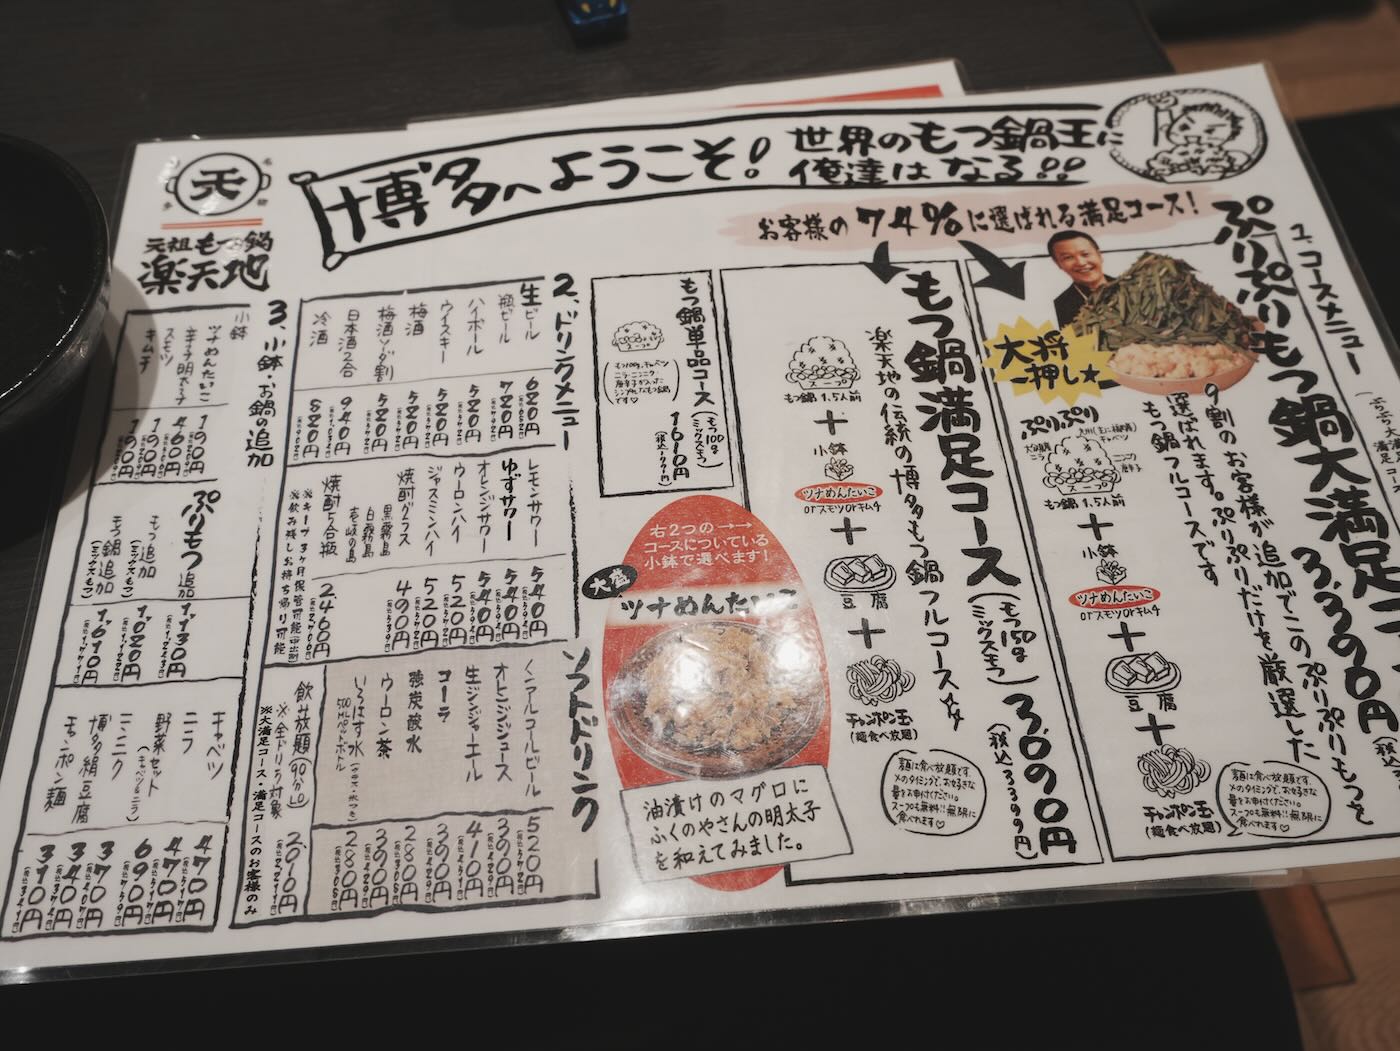 博多へようこそ!
世界のもつ鍋王に
俺達はなる!!
元祖もつ鍋
楽天地
お客様の74%に選ばれる満足コース!
1.コースメニュー
ぷりぷりもつ鍋大満足コ
大将
一押し★
9割のお客様が追加でこのぷりぷりもつを
選ばれます。ぷりぷりだけを厳選した
もつ鍋フルコースです
ぷりぷり
スープ
もつ鍋 1.5人前
+
小鉢
ツナめんたいこ
orスモツorキムチ
+
豆腐
+
チャンポン玉
(麺食べ放題)
麺は食べ放題です。
〆のタイミングで、お好きな
量をお申付ください。
スープも無料!!無限に
食べれます♡
もつ鍋満足コース
(もつ150g
ミックスもつ)
3,090円
(税込3399円)
楽天地の伝統の博多もつ鍋フルコース
スープ
もつ鍋 1.5人前
+
小鉢
ツナめんたいこ
orスモツorキムチ
+
豆腐
+
チャンポン玉
(麺食べ放題)
麺は食べ放題です。
〆のタイミングで、お好きな
量をお申付ください。
スープも無料!!無限に
食べれます♡
もつ鍋単品コース
(もつ100g
ミックスもつ)
スープ
もつ100g、キャベツ
ニラ・ニンニク・
唐辛子が入った
シンプルなもつ鍋
です♡
1610円
右2つの→→
コースについている
小鉢で選べます!
大盛
ツナめんたいこ
油漬けのマグロに
ふくのやさんの明太子
を和えてみました。
2.ドリンクメニュー
生ビール 620円
瓶ビール 720円
ハイボール 520円
ウイスキー 520円
梅酒 520円
梅酒ソーダ割 520円
日本酒2合 940円
冷酒 820円
レモンサワー 540円
ゆずサワー 540円
オレンジサワー 540円
ウーロンハイ 520円
ジャスミンハイ 520円
焼酎グラス 490円
黒霧島
白霧島
壱岐の島
焼酎5合瓶 2,460円
※キープ3ヶ月保管可能
※飲み残しお持ち帰り可能
ソフトドリンク
ノンアルコールビール 520円
オレンジジュース 390円
生ジンジャーエール 410円
コーラ 390円
強炭酸水 280円
ウーロン茶 390円
いろはす水 280円
飲み放題(90分LO) 2,010円
※全ドリンク対象
※大満足コース・満足コースのお客様のみ
3.小鉢・お鍋の追加
小鉢
ツナめんたいこ 190円
辛子明太子 460円
スモツ 190円
キムチ 190円
ぷりもつ追加 1,130円
もつ追加 1,020円
(ミックスもつ)
もつ鍋追加 1,610円
(ミックスもつ)
キャベツ 470円
ニラ 470円
野菜セット 690円
(キャベツ・ニラ)
ニンニク 370円
博多絹豆腐 340円
チャンポン麺 310円